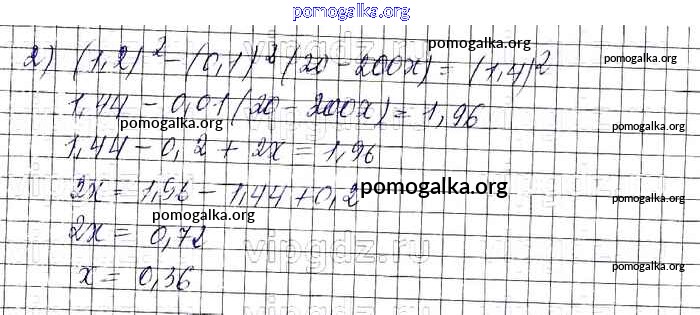 pomogalka.org
2) (1,2)² - (0,1)² (20 - 200x) = (1,4)²
pomogalka.org
pomogalka.org
1,44 - 0,01 (20 - 200x) = 1,96
pomogalka.org
pomogalka.org
1,44 - 0,2 + 2x = 1,96
2x = 1,96 - 1,44 + 0,2
pomogalka.org
pomogalka.org
pomogalka.org
2x = 0,72
vipgdz.ru
x = 0,36
pomogalka.org